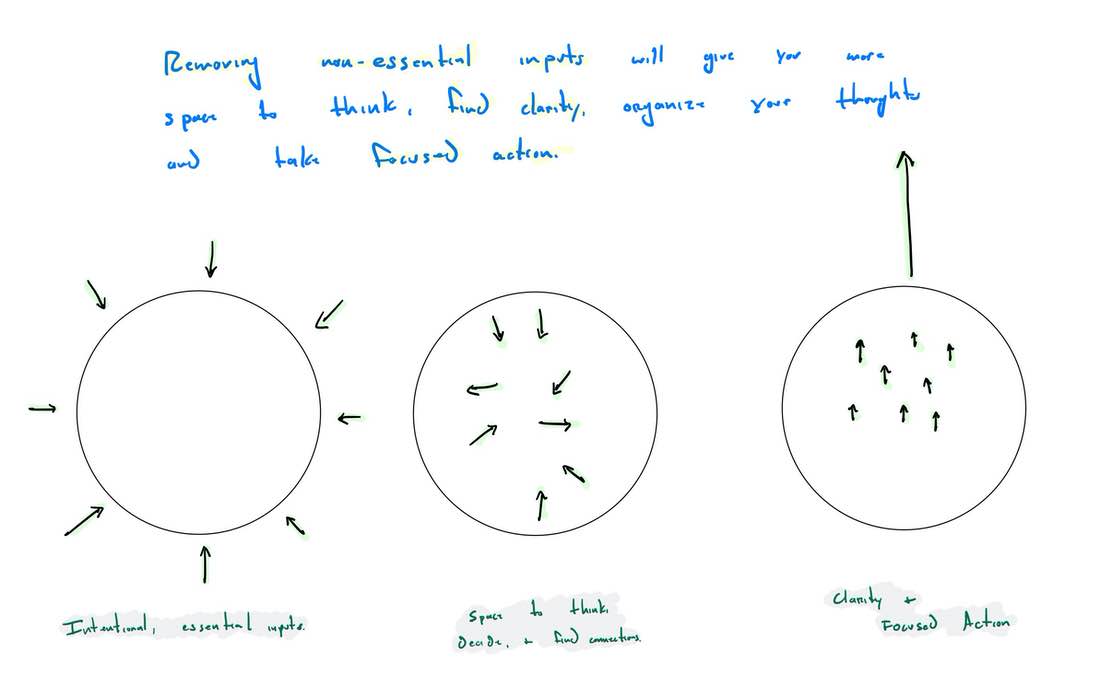 Removing non-essential inputs will give you more
space to think, find clarity, organize your thoughts
and take focused action.
Intentional, essential inputs.
Space to think,
Decide, + find connections.
Clarity +
Focused Action